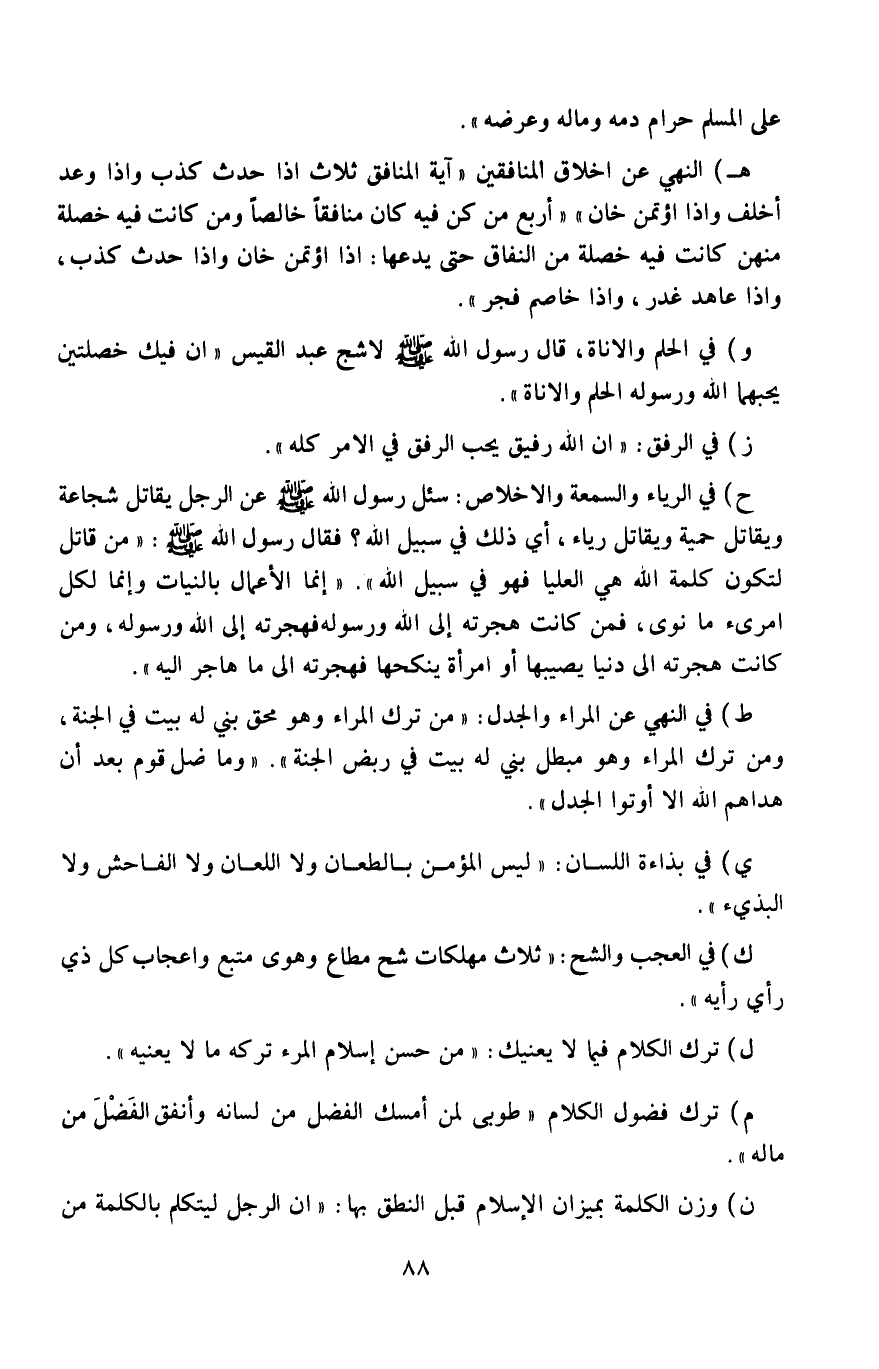 على المسلم حرام دمه وماله وعرضه ».
هـ) النهي عن اخلاق المنافقين « آية المنافق ثلاث اذا حدث كذب واذا وعد
أخلف واذا اؤتمن خان » « أربع من كن فيه كان منافقاً خالصاً ومن كانت فيه خصلة
منهن كانت فيه خصلة من النفاق حتى يدعها : اذا اؤتمن خان واذا حدث كذب ،
واذا عاهد غدر ، واذا خاصم فجر ».
و) في الحلم والاناة، قال رسول الله ﷺ لاشج عبد القيس « ان فيك خصلتين
يحبهما الله ورسوله الحلم والاناة ».
ز) في الرفق : « ان الله رفيق يحب الرفق في الامر كله ».
ح) في الرياء والسمعة والاخلاص : سئل رسول الله ﷺ عن الرجل يقاتل شجاعة
ويقاتل حمية ويقاتل رياء ، أي ذلك في سبيل الله ؟ فقال رسول الله ﷺ : « من قاتل
لتكون كلمة الله هي العليا فهو في سبيل الله ». « إنما الأعمال بالنيات وإنما لكل
امرىء ما نوى، فمن كانت هجرته إلى الله ورسوله فهجرته إلى الله ورسوله، ومن
كانت هجرته الى دنيا يصيبها أو امرأة ينكحها فهجرته الى ما هاجر اليه ».
ط) في النهي عن المراء والجدل : « من ترك المراء وهو محق بني له بيت في الجنة ،
ومن ترك المراء وهو مبطل بني له بيت في ربض الجنة ». « وما ضل قوم بعد أن
هداهم الله الا أوتوا الجدل ».
ي) في بذاءة اللسان : « ليس المؤمن بالطعان ولا اللعان ولا الفاحش ولا
البذيء ».
ك) في العجب والشح : « ثلاث مهلكات شح مطاع وهوى متبع واعجاب كل ذي
رأي رأيه ».
ل) ترك الكلام فيما لا يعنيك : « من حسن إسلام المرء تركه ما لا يعنيه ».
م) ترك فضول الكلام « طوبى لمن أمسك الفضل من لسانه وأنفق الفَضْلَ من
ماله ».
ن) وزن الكلمة بميزان الإسلام قبل النطق بها : « ان الرجل ليتكلم بالكلمة من
٨٨